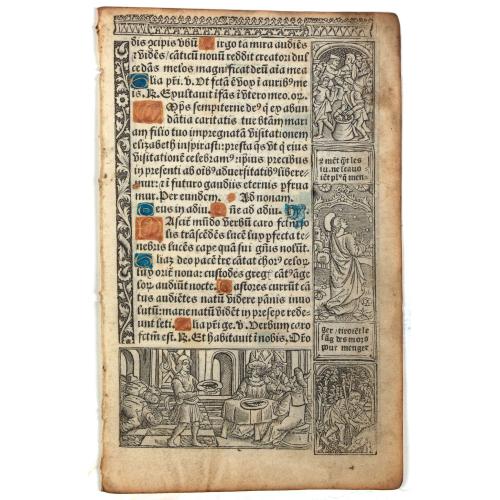 dis ꝯcipis vbũ Uirgo ta mira audiẽs
⁊ vidẽs / cãticũ nouũ reddit creatori dul
cedãs melos magnificat deũ aĩa mea
Alia pr̃i. v. Ut fctã ẽ vox ĩ auribꝰ me
is. R. Exultauit ĩfãs ĩ vtero meo. or.
Oĩps sempiterne deꝰ q̃ ex abun
dãtia caritatis tue btãm mari
am filio tuo impregnatã visitationem
elizabeth inspirasti: presta q̃s vt q̃ eius
visitationẽ celebramꝰ ipsius precibus
in presenti ab oĩbꝰ aduersitatibꝰ libere-
mur: ⁊ ĩ futuro gaudiis eternis pfrua
mur. Per eundem. Ad nonam.
Deus in adiu. Dñe ad adiu.
Nascit mũdo verbũ caro
trãscẽdẽs lucẽ luxy pfecta te-
nebris lucẽs cape quã sui gñis nolũt.
Alia deo pacẽ
lux oriẽ noua: custodes greg
sor audiũt nocte. Pastores currũt cã
tus audiẽtes natũ videre pãnis inuo
lutũ: marie natũ vidẽt in presepe rede-
unt leti. Alia pr̃i ge. v. Verbum caro
factm̃ est. R. Et habitauit ĩ nobis. Oro
⁊ mẽt q̃t les
iu. ne leauo
iẽt pl⁹ q̃ men-
ger / tiroiẽt le
sãg des mors
pour menger